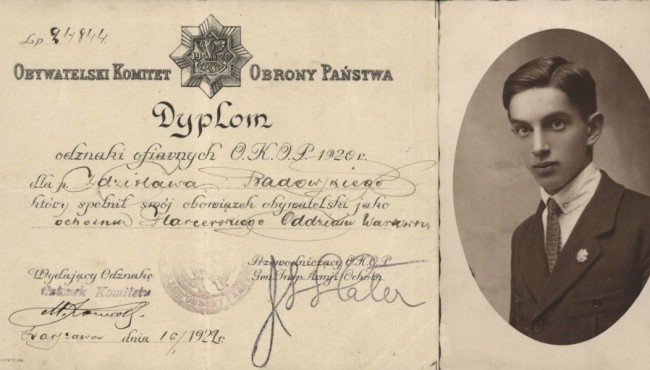 Lp. 24844
OBYWATELSKI KOMITET OBRONY PAŃSTWA
Dyplom
odznaki ofiarnych O.K.O.P. 1920 r.
dla p. Zdzisława Badowskiego
który spełnił swój obowiązek obywatelski jako
ochotnik Harcerskiego Oddziału
Wydający Odznakę
Członek Komitetu
Przewodniczący O.K.O.P.
Gen. Insp. Armji Ochotn.
J Haller
Warszawa dnia 10/ 1922r.